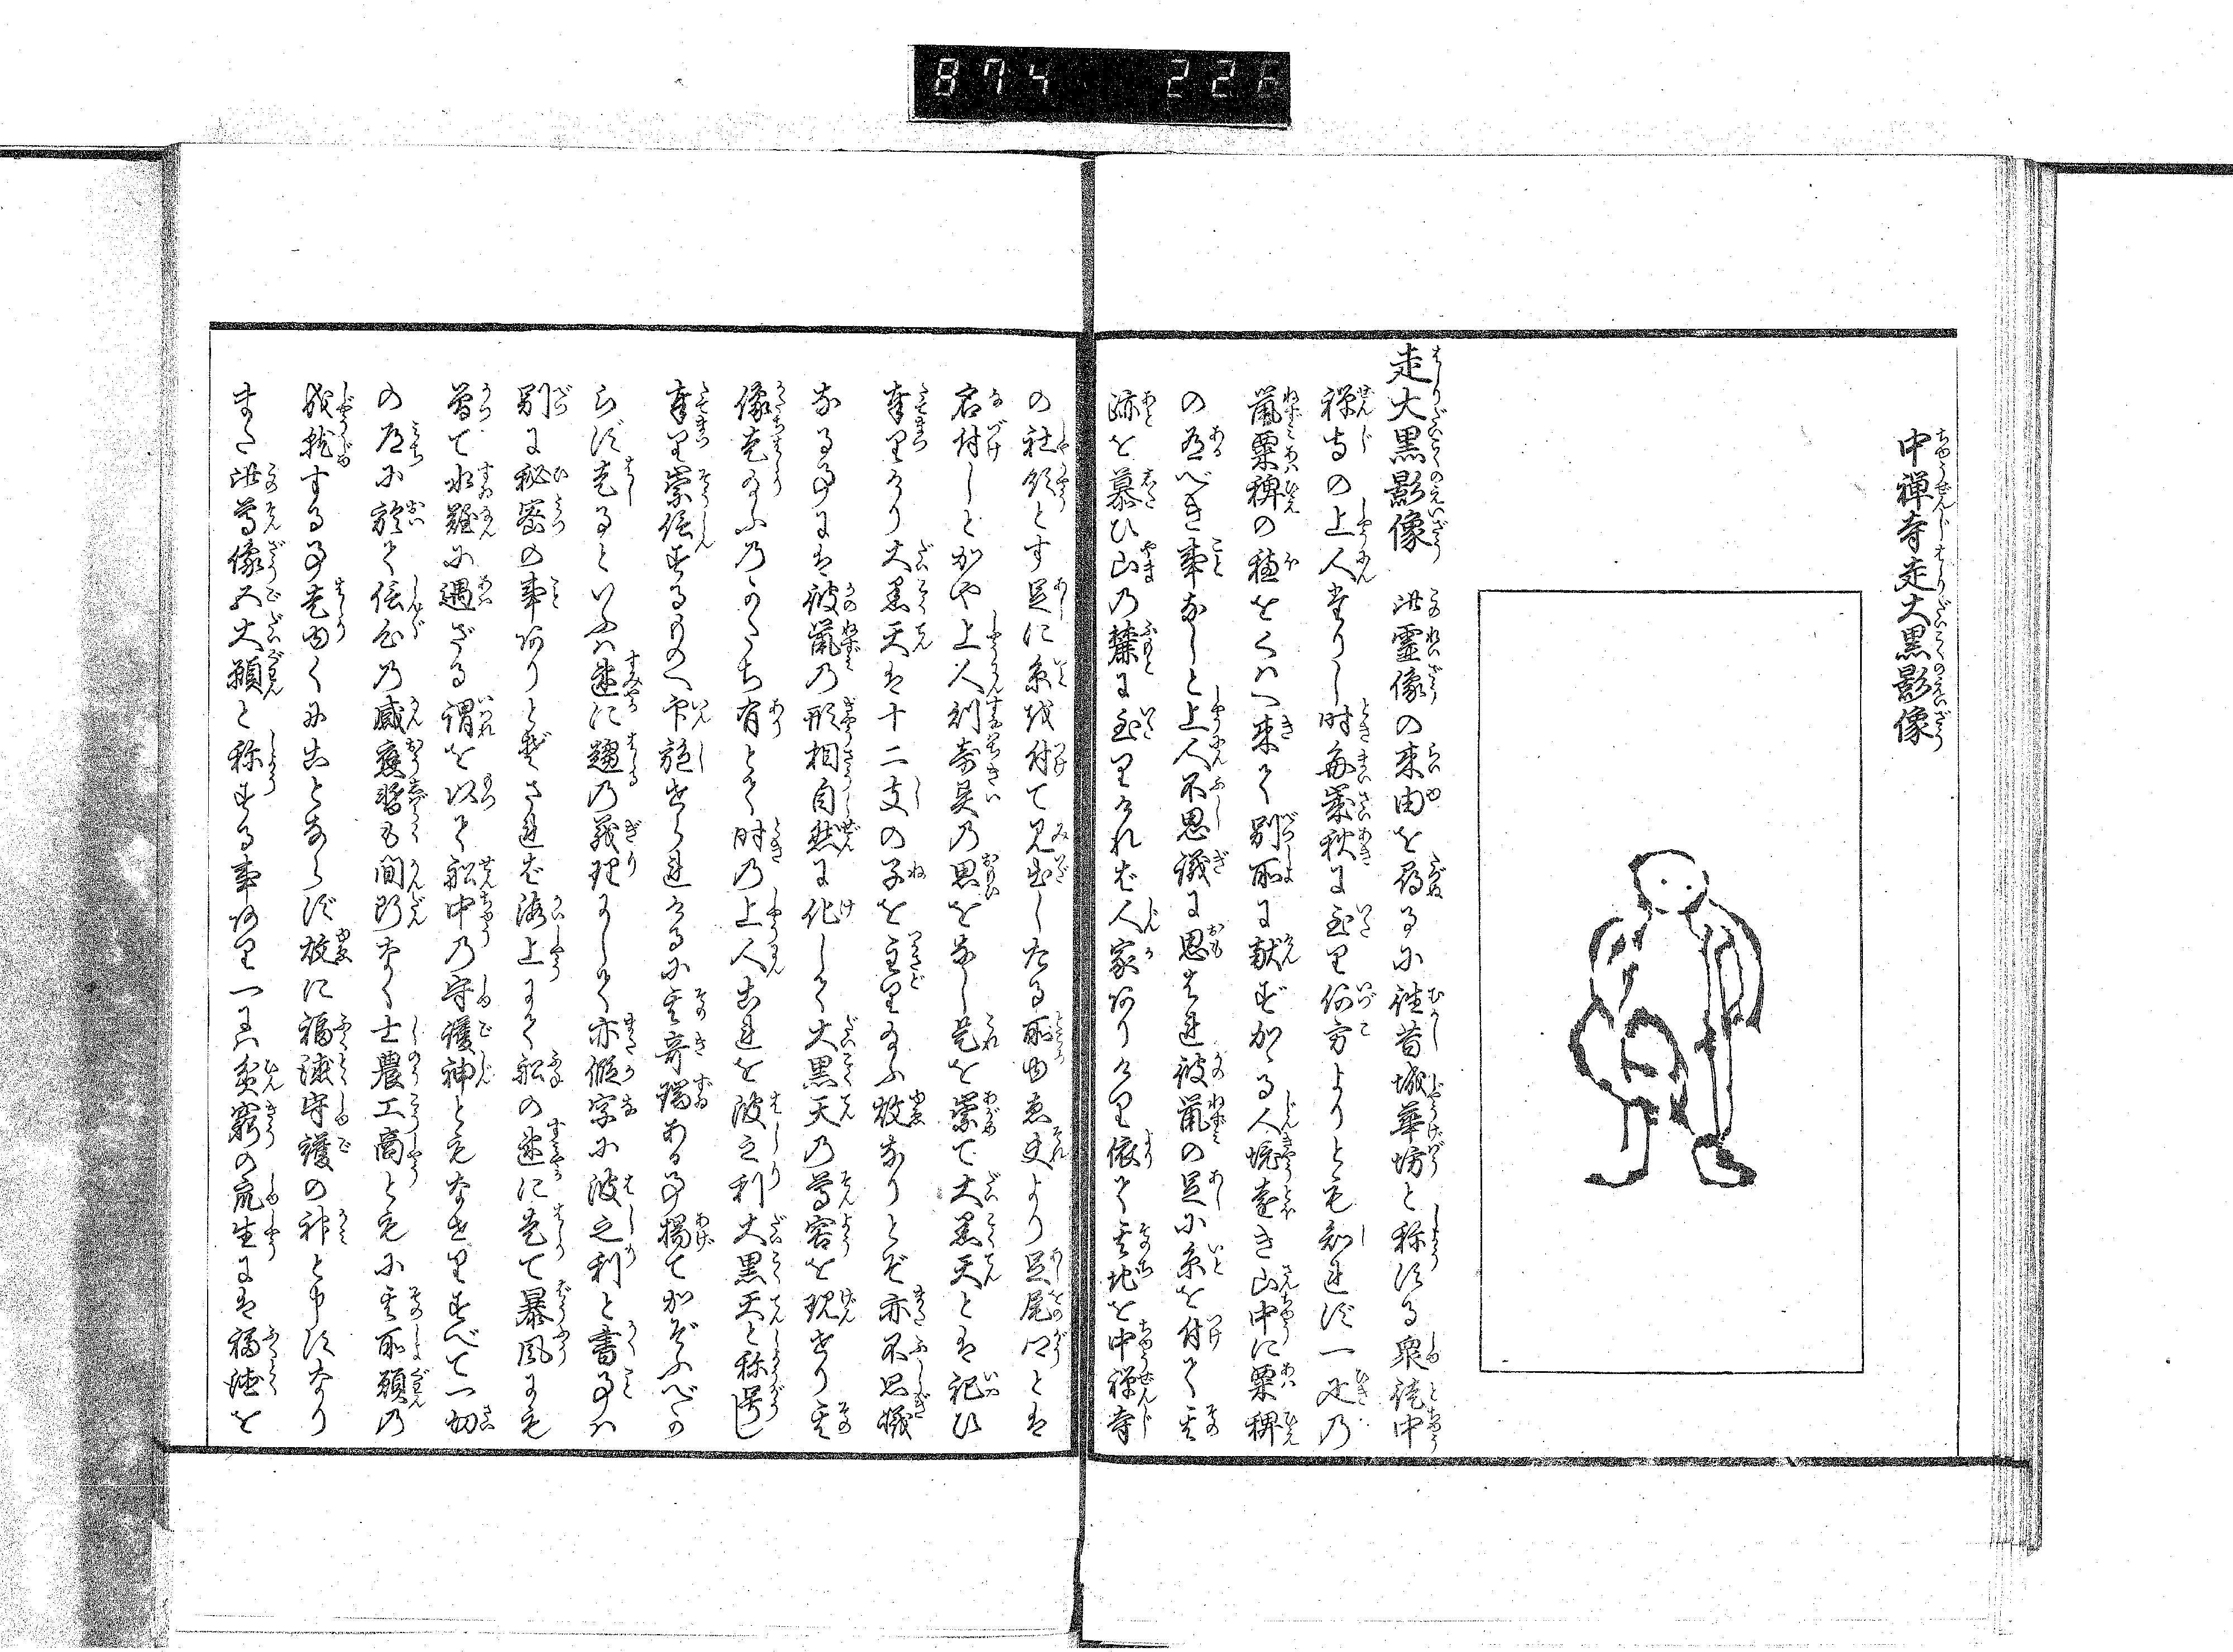 874 226
中禅寺走大黒影像
走大黒影像 此霊像の来由を尋るに往昔城華坊と称する衆徒中
禅寺の上人たりし時毎歳秋に至り何方よりとも知れず一疋の
鼠粟稗の穂をくはへ来て別所に献ずかゝる人境遠き山中に粟稗
の有べき事なしと上人不思議に思はれ彼鼠の足に糸を付て其
跡を慕ひ山の麓に至りければ人家ありけり依て其地を中禅寺
の社領とす足に糸を付て見出したる所ゆゑ夫より足尾郷とは
名付しとかや上人利益奇異の思をなし是を崇て大黒天とは祀ひ
奉りけり大黒天は十二支の子を主り給ふ故なりとぞ亦不思議
なる事には彼鼠の形相自然に化して大黒天の尊容を現せり其
像走り給ふのかたち有とて時の上人これを波之利大黒天と称号し
奉り崇信するものへ印施せられけるに其奇瑞ある事揚てかぞふべか
らず走るといふは速に趨の義理にして亦仮字に波之利と書事は
別に秘密の事ありとぞされば海上にて船の速に走て暴風にも
曽て水難に遇ざる謂を以て船中の守護神ともなせりすべて一切
の道に於て信心の感応暫も間断なく士農工商ともに其所願の
成就する事走ゆくにことならず故に福徳守護の神と申すなり
またこの尊像五大願と称する事あり一には貧窮の衆生には福徳を